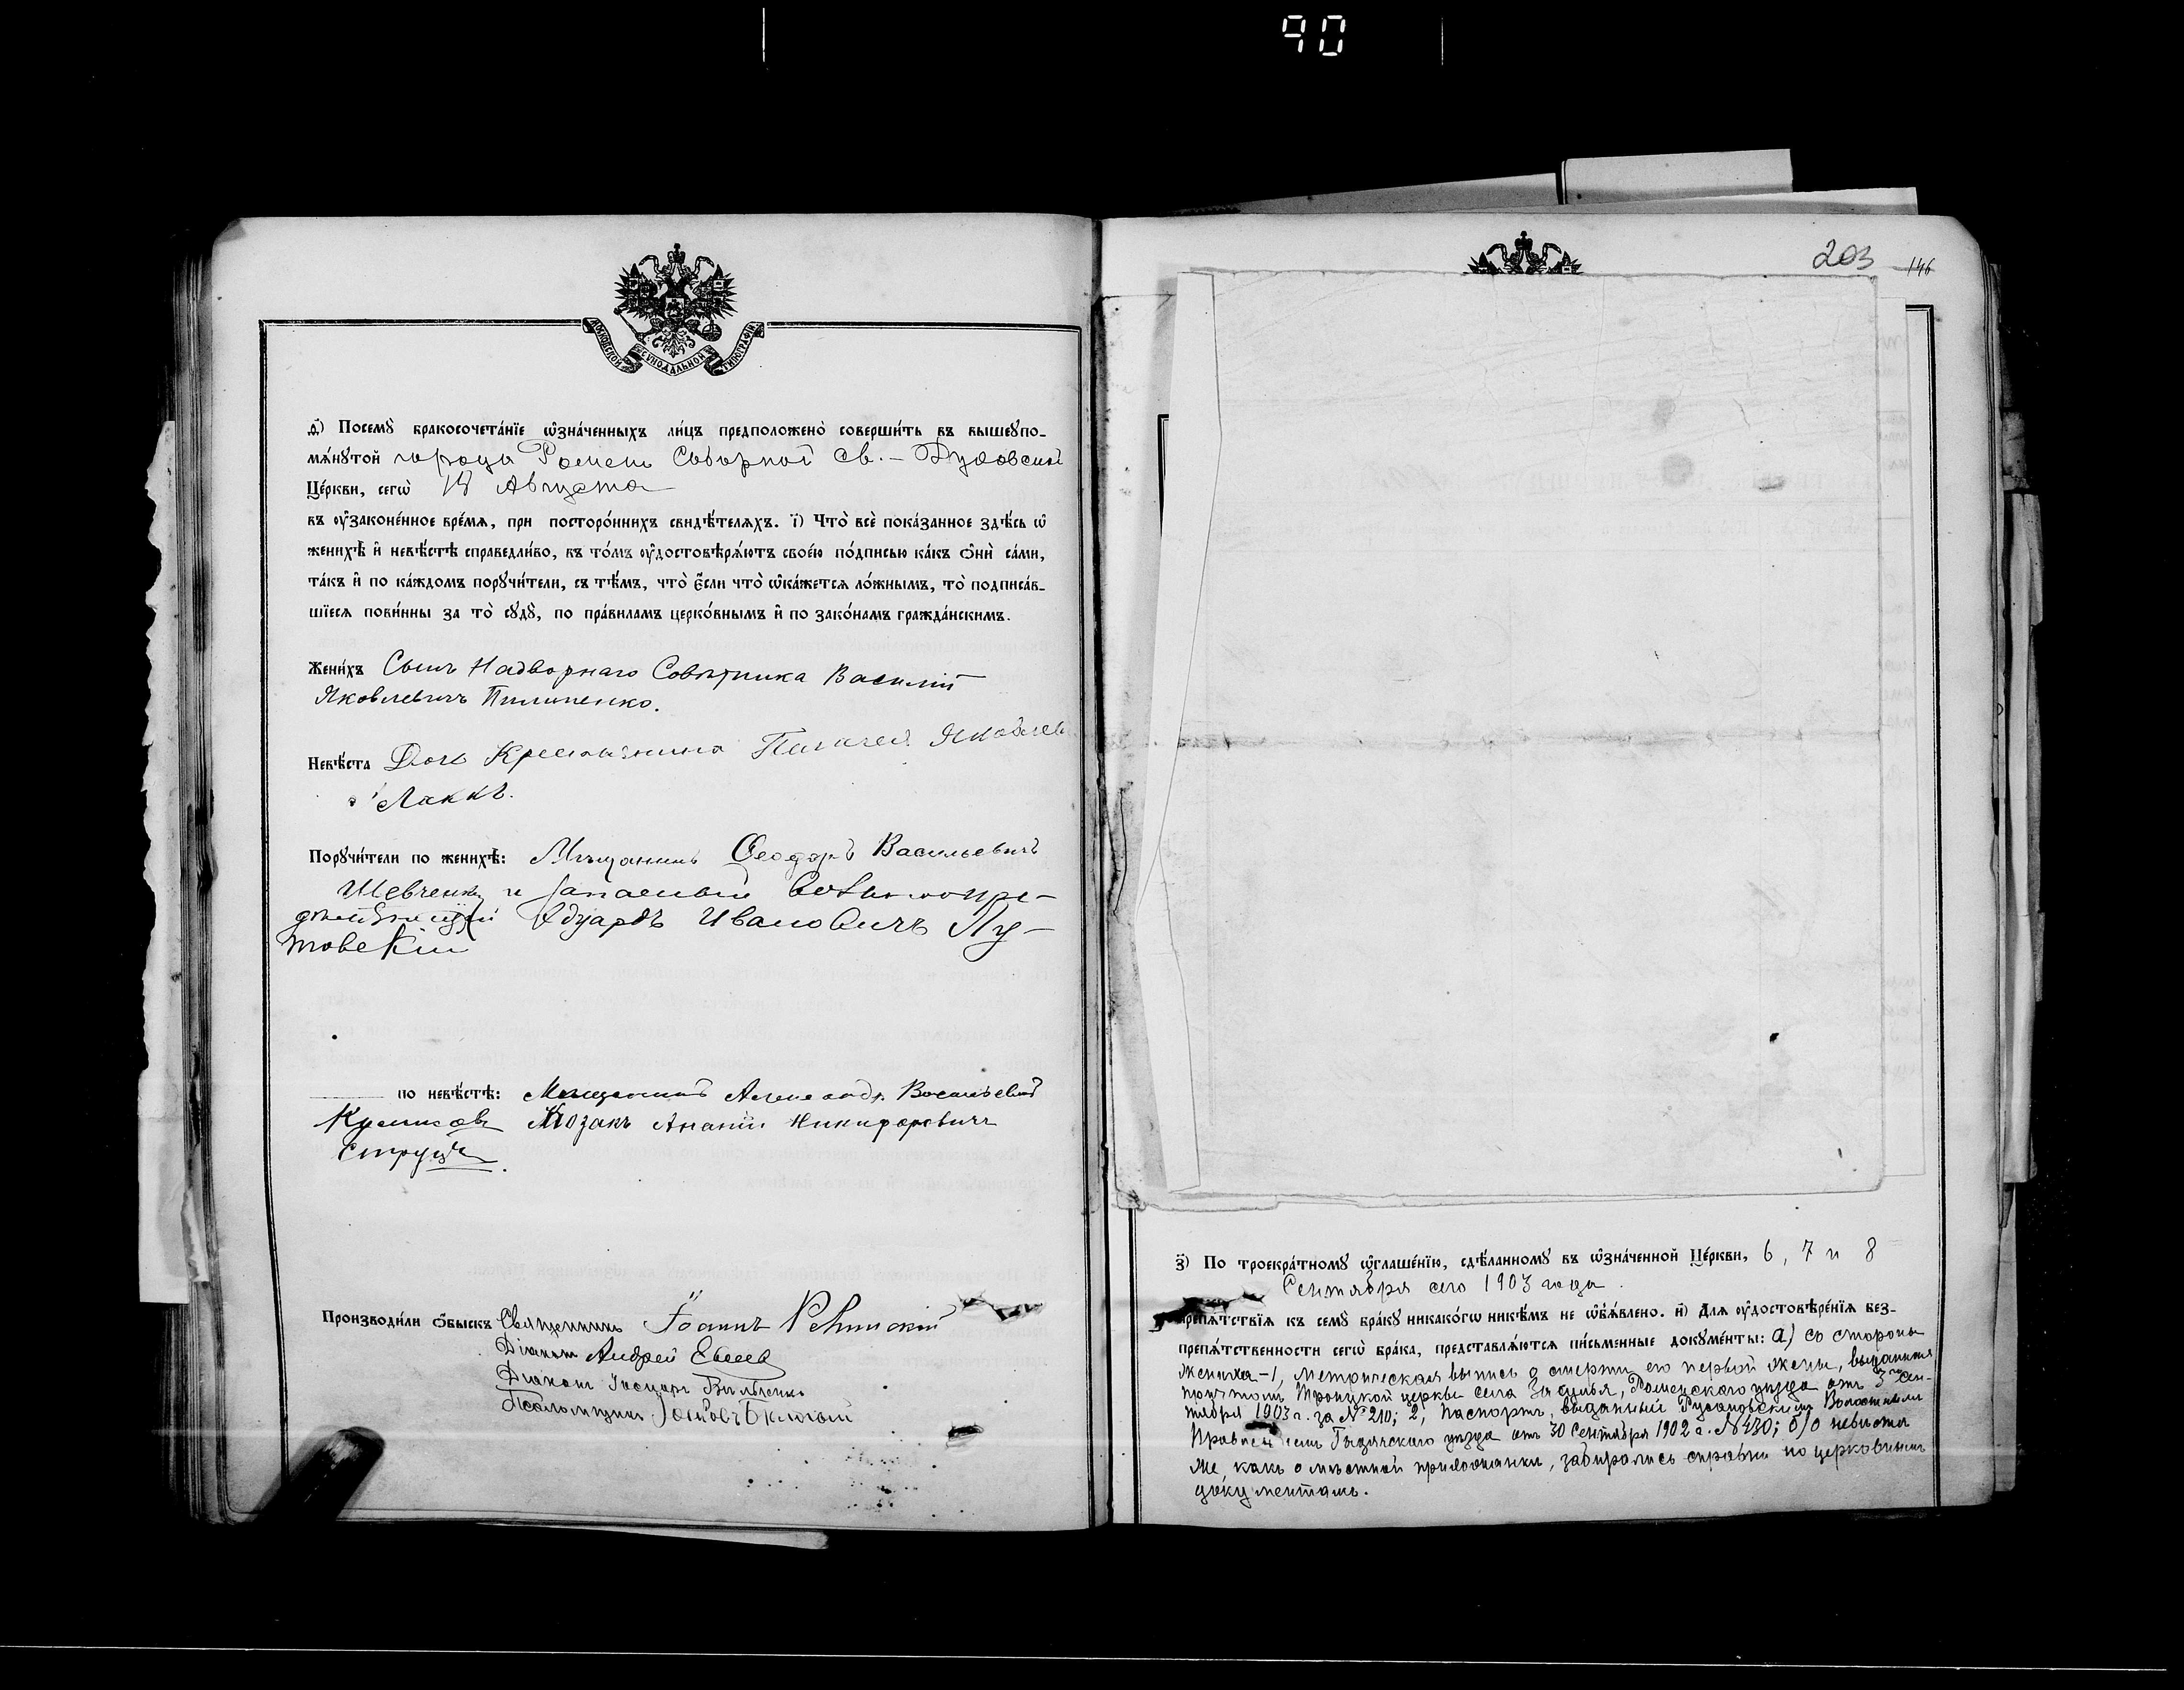 90
МОСКОВСКОЙ СѴНОДАЛЬНОЙ ТИПОГРАФІИ
Посемꙋ̀ бракосочета́нїе ѡ҆зна́ченныхъ ли́цъ предположено̀ соверши́ть въ вышеꙋпо-
мѧ́нꙋтой города Ромен Соборной св. - Духовской
Це́ркви, сегѡ̀ Августа
въ ᲂу҆законе́нное вре́мѧ, при посторо́ннихъ свидѣ́телѧхъ. ї) Что̀ всѐ пока́занное здѣ́сь ѡ҆
женихѣ̀ и҆ невѣ́стѣ справедли́во, въ то́мъ ᲂу҆достовѣрѧ́ютъ свое́ю по́дписью ка́къ ѻ҆нѝ са́ми,
та́къ и҆ по ка́ждомъ порꙋчи́тели, съ тѣ́мъ, что̀ є҆́сли что̀ ѡ҆ка́жетсѧ ло́жнымъ, то̀ подписа́в-
шїесѧ пови́нны за то̀ сꙋдꙋ̀, по пра́виламъ церко́внымъ и҆ по зако́намъ гражда́нскимъ.
Жени́хъ Сынъ Надворнаго Совѣтника Василій
Яковлевичъ Пилипенко.
Невѣ́ста Дочь Крестьянина Пелагея Яковлев
Лаккъ.
Порꙋчи́тели по женихѣ̀: Мѣщанинъ Ѳеодоръ Васильевичъ
Шевченко и запасный
Эдуардъ Ивановичъ Лу-
товскій
по невѣ́стѣ: Мѣщанинъ Александр Васильевич
Козакъ Ананій Никифоровичъ
Производи́ли ѻ҆́быскъ Священникъ Іоаннъ
Діаконъ Андрей Евсеев
Діаконъ
Псаломщикъ
203
146
з҃) По троекра́тномꙋ ѡ҆глаше́нїю, сдѣ́ланномꙋ въ ѡ҆зна́ченной Це́ркви, 6, 7 и 8
Сентября сего 1903 года
препѧ́тствїѧ къ семꙋ̀ бра́кꙋ никако́гѡ никѣ́мъ не ѡ҆б̾ѧ́влено. и҃) Длѧ ᲂу҆достовѣре́нїѧ без-
препѧ́тственности сегѡ̀ бра́ка, представлѧ́ютсѧ пи́сьменные докꙋме́нты: а) со стороны
жениха - 1, метрическая выпись о смерти его первой жены, выданная
причтом Троицкой церкви села Засулья, Роменскаго уѣзда отъ 3 сен-
тября 1903 г. за № 210; 2, паспортъ, выданный Русановским Волостным
Правленіем Гадячскаго уѣзда отъ 30 Сентября 1902 г. № 430; б) о невѣстѣ
же, какъ о мѣстной прихожанки, забирались справки по церковным
документамъ.